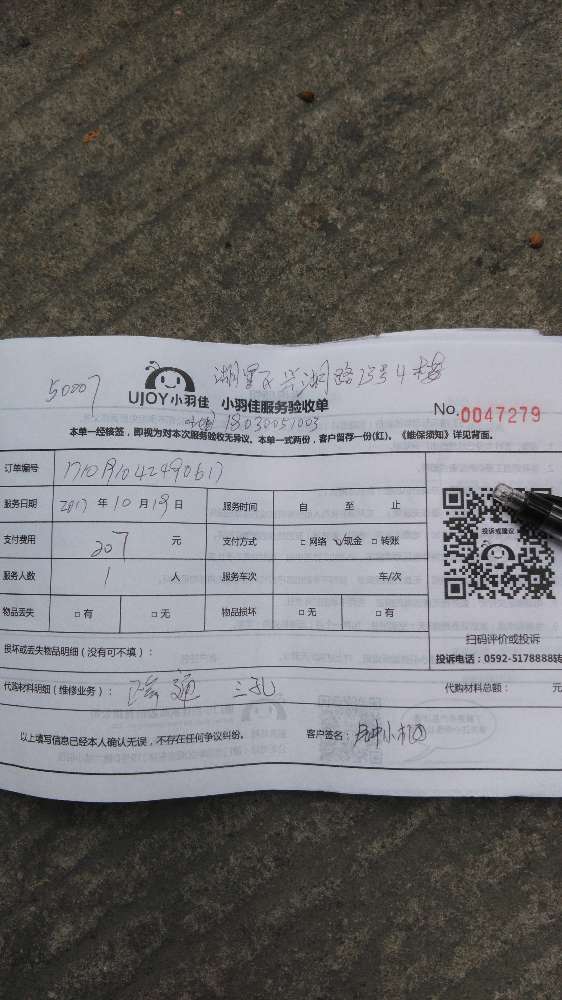 50007
湖里区兴湖路23号4楼
UJOY小羽佳 小羽佳服务验收单
No.0047279
18030051003
本单一经核签，即视为对本次服务验收无异议。本单一式两份，客户留存一份(红)。《维保须知》详见背面。
订单编号
服务日期 2017年10月19日 服务时间 自 至 止
支付费用 207 元 支付方式 □网络 ☑现金 □转账
服务人数 1 人 服务车次 车/次
物品丢失 □有 □无 物品损坏 □无 □有
投诉或建议
扫码评价或投诉
投诉电话：0592-5178888转
损坏或丢失物品明细（没有可不填）：
代购材料明细（维修业务）： 疏通 三孔 代购材料总额： 元
以上填写信息已经本人确认无误，不存在任何争议纠纷。 客户签名：